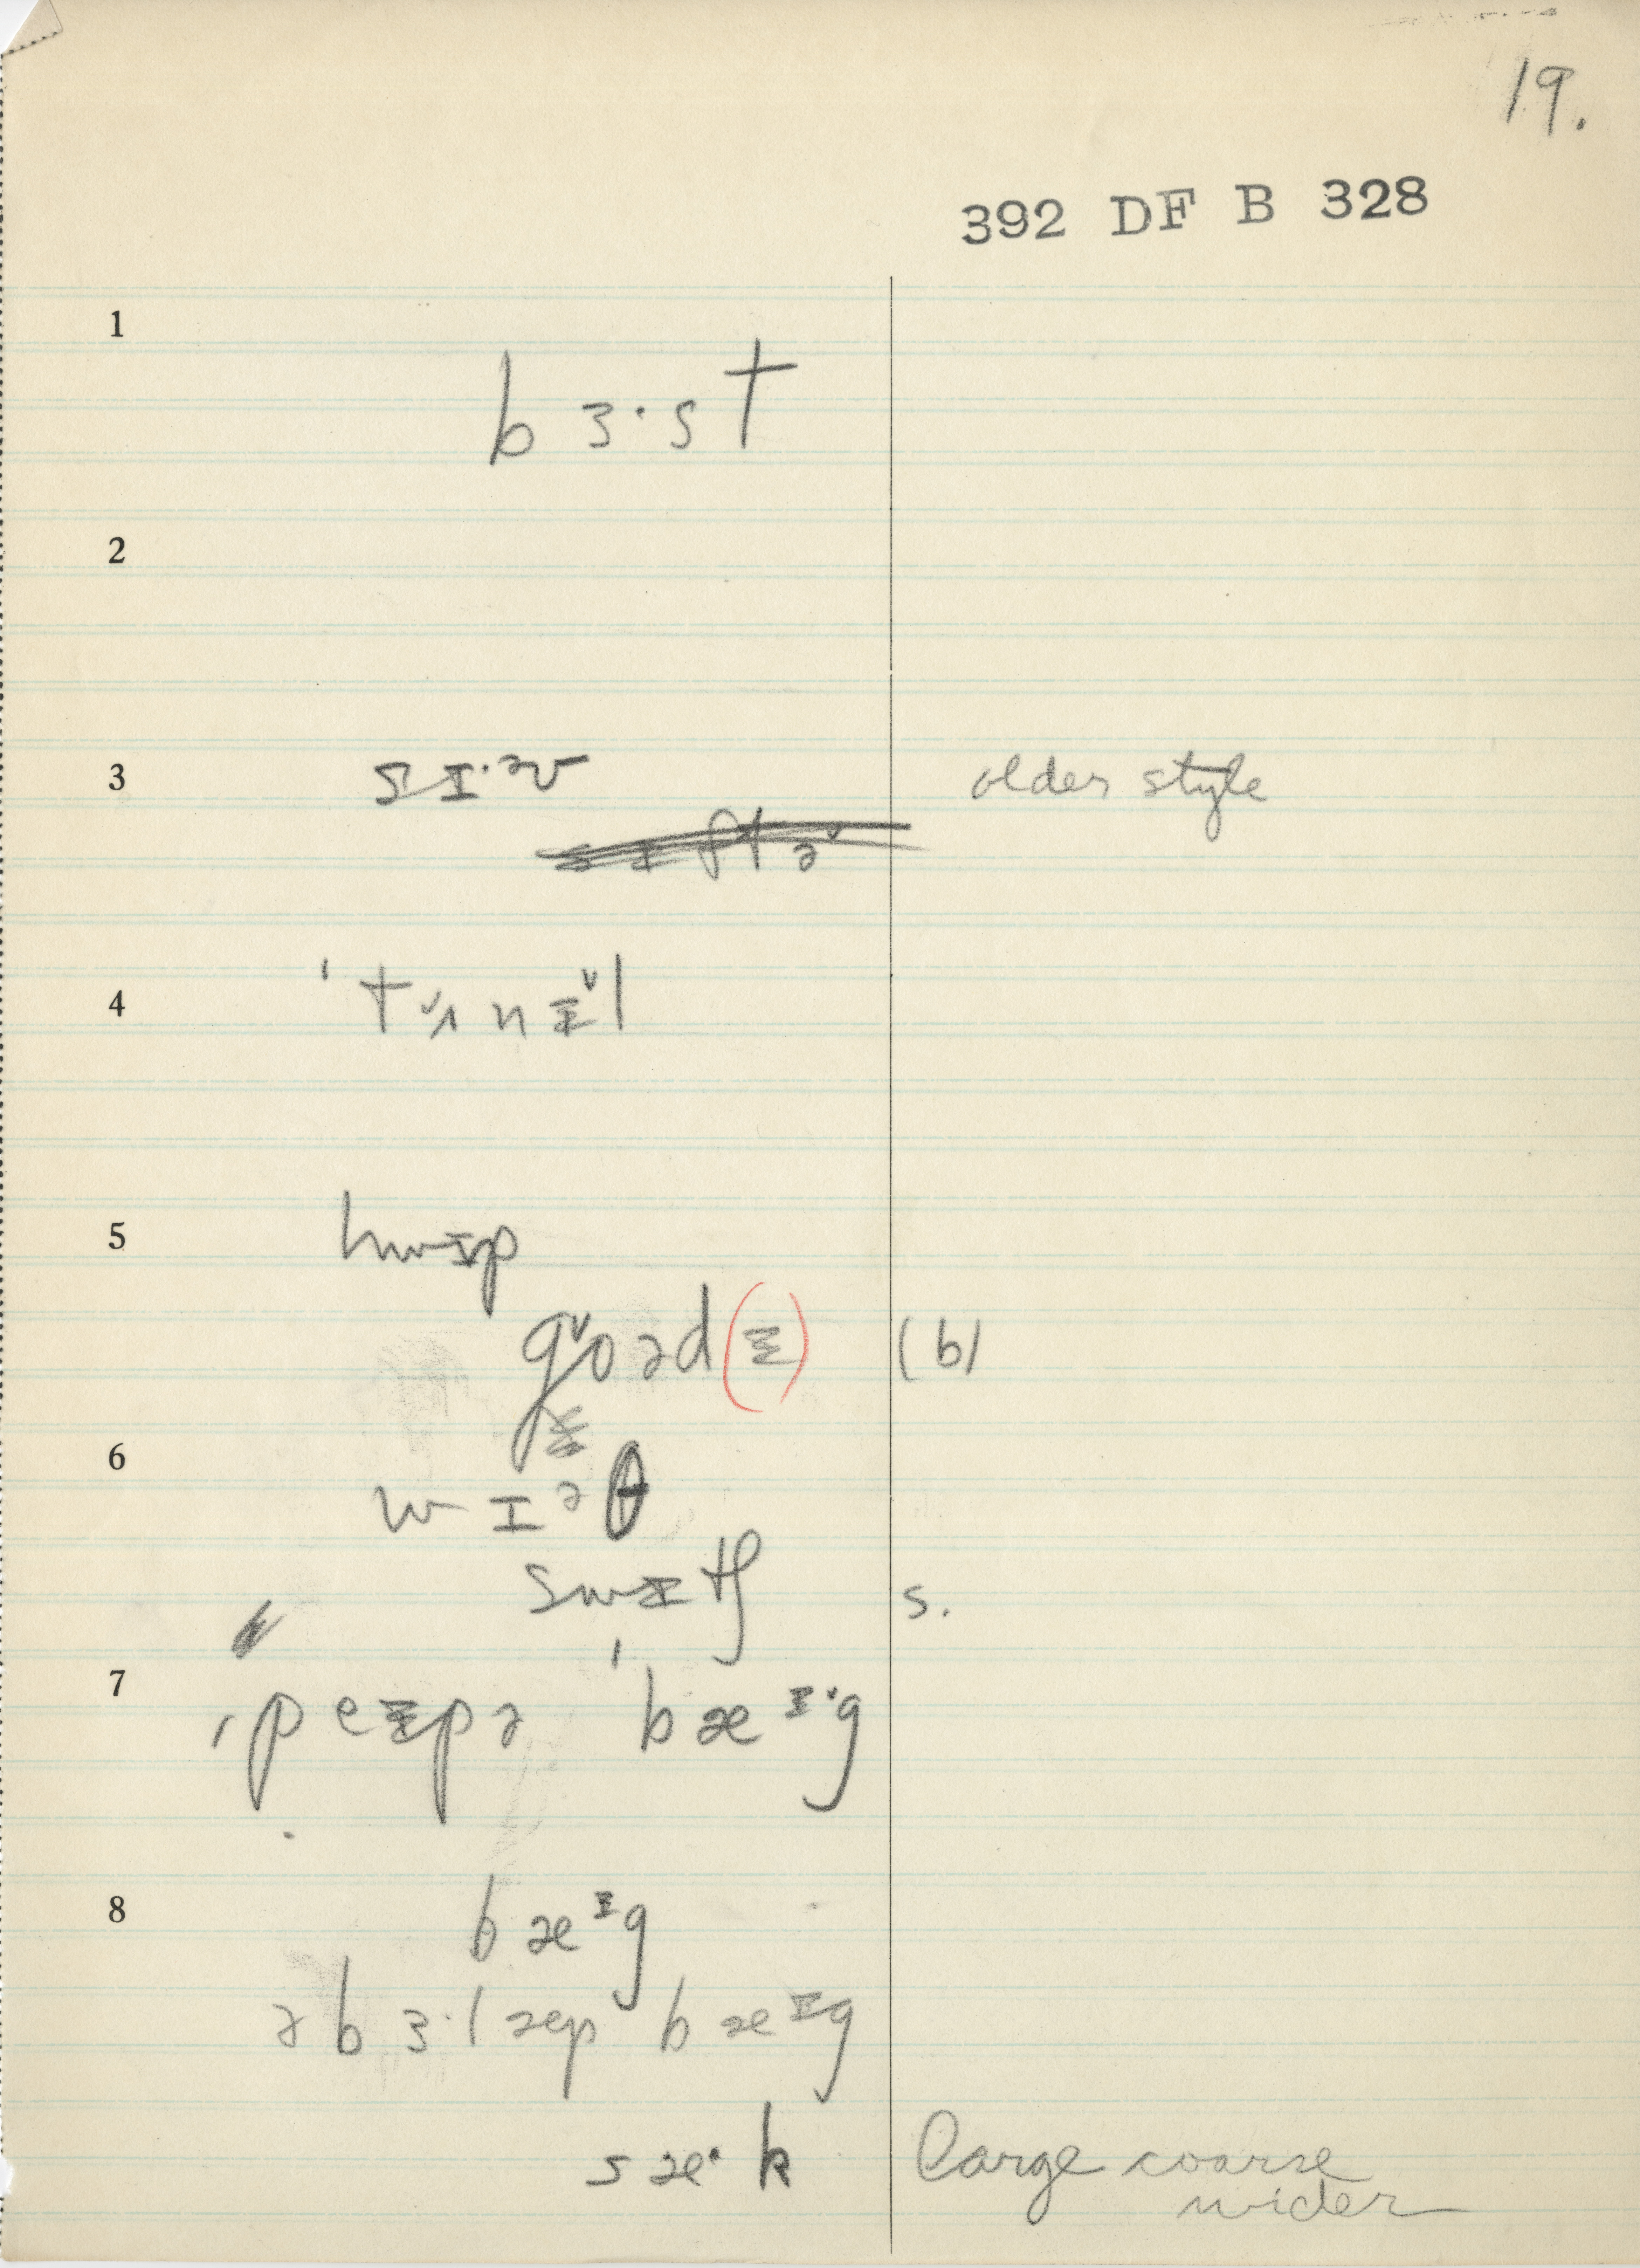 19.
392 DF B 328
1
bɜ·st
2
3 sɪ·əv older style
4 'tʌ˅nᵻ˅l
5 hwɪp
g˅oəd(ᵻ) (b)
6
wɪəθ
swɪtʃ s.
7 ˌpeɪpə ˈbæɪ·g
8 bæɪg
ə bɜ·læp bæɪg
sæ·k large coarse
wider